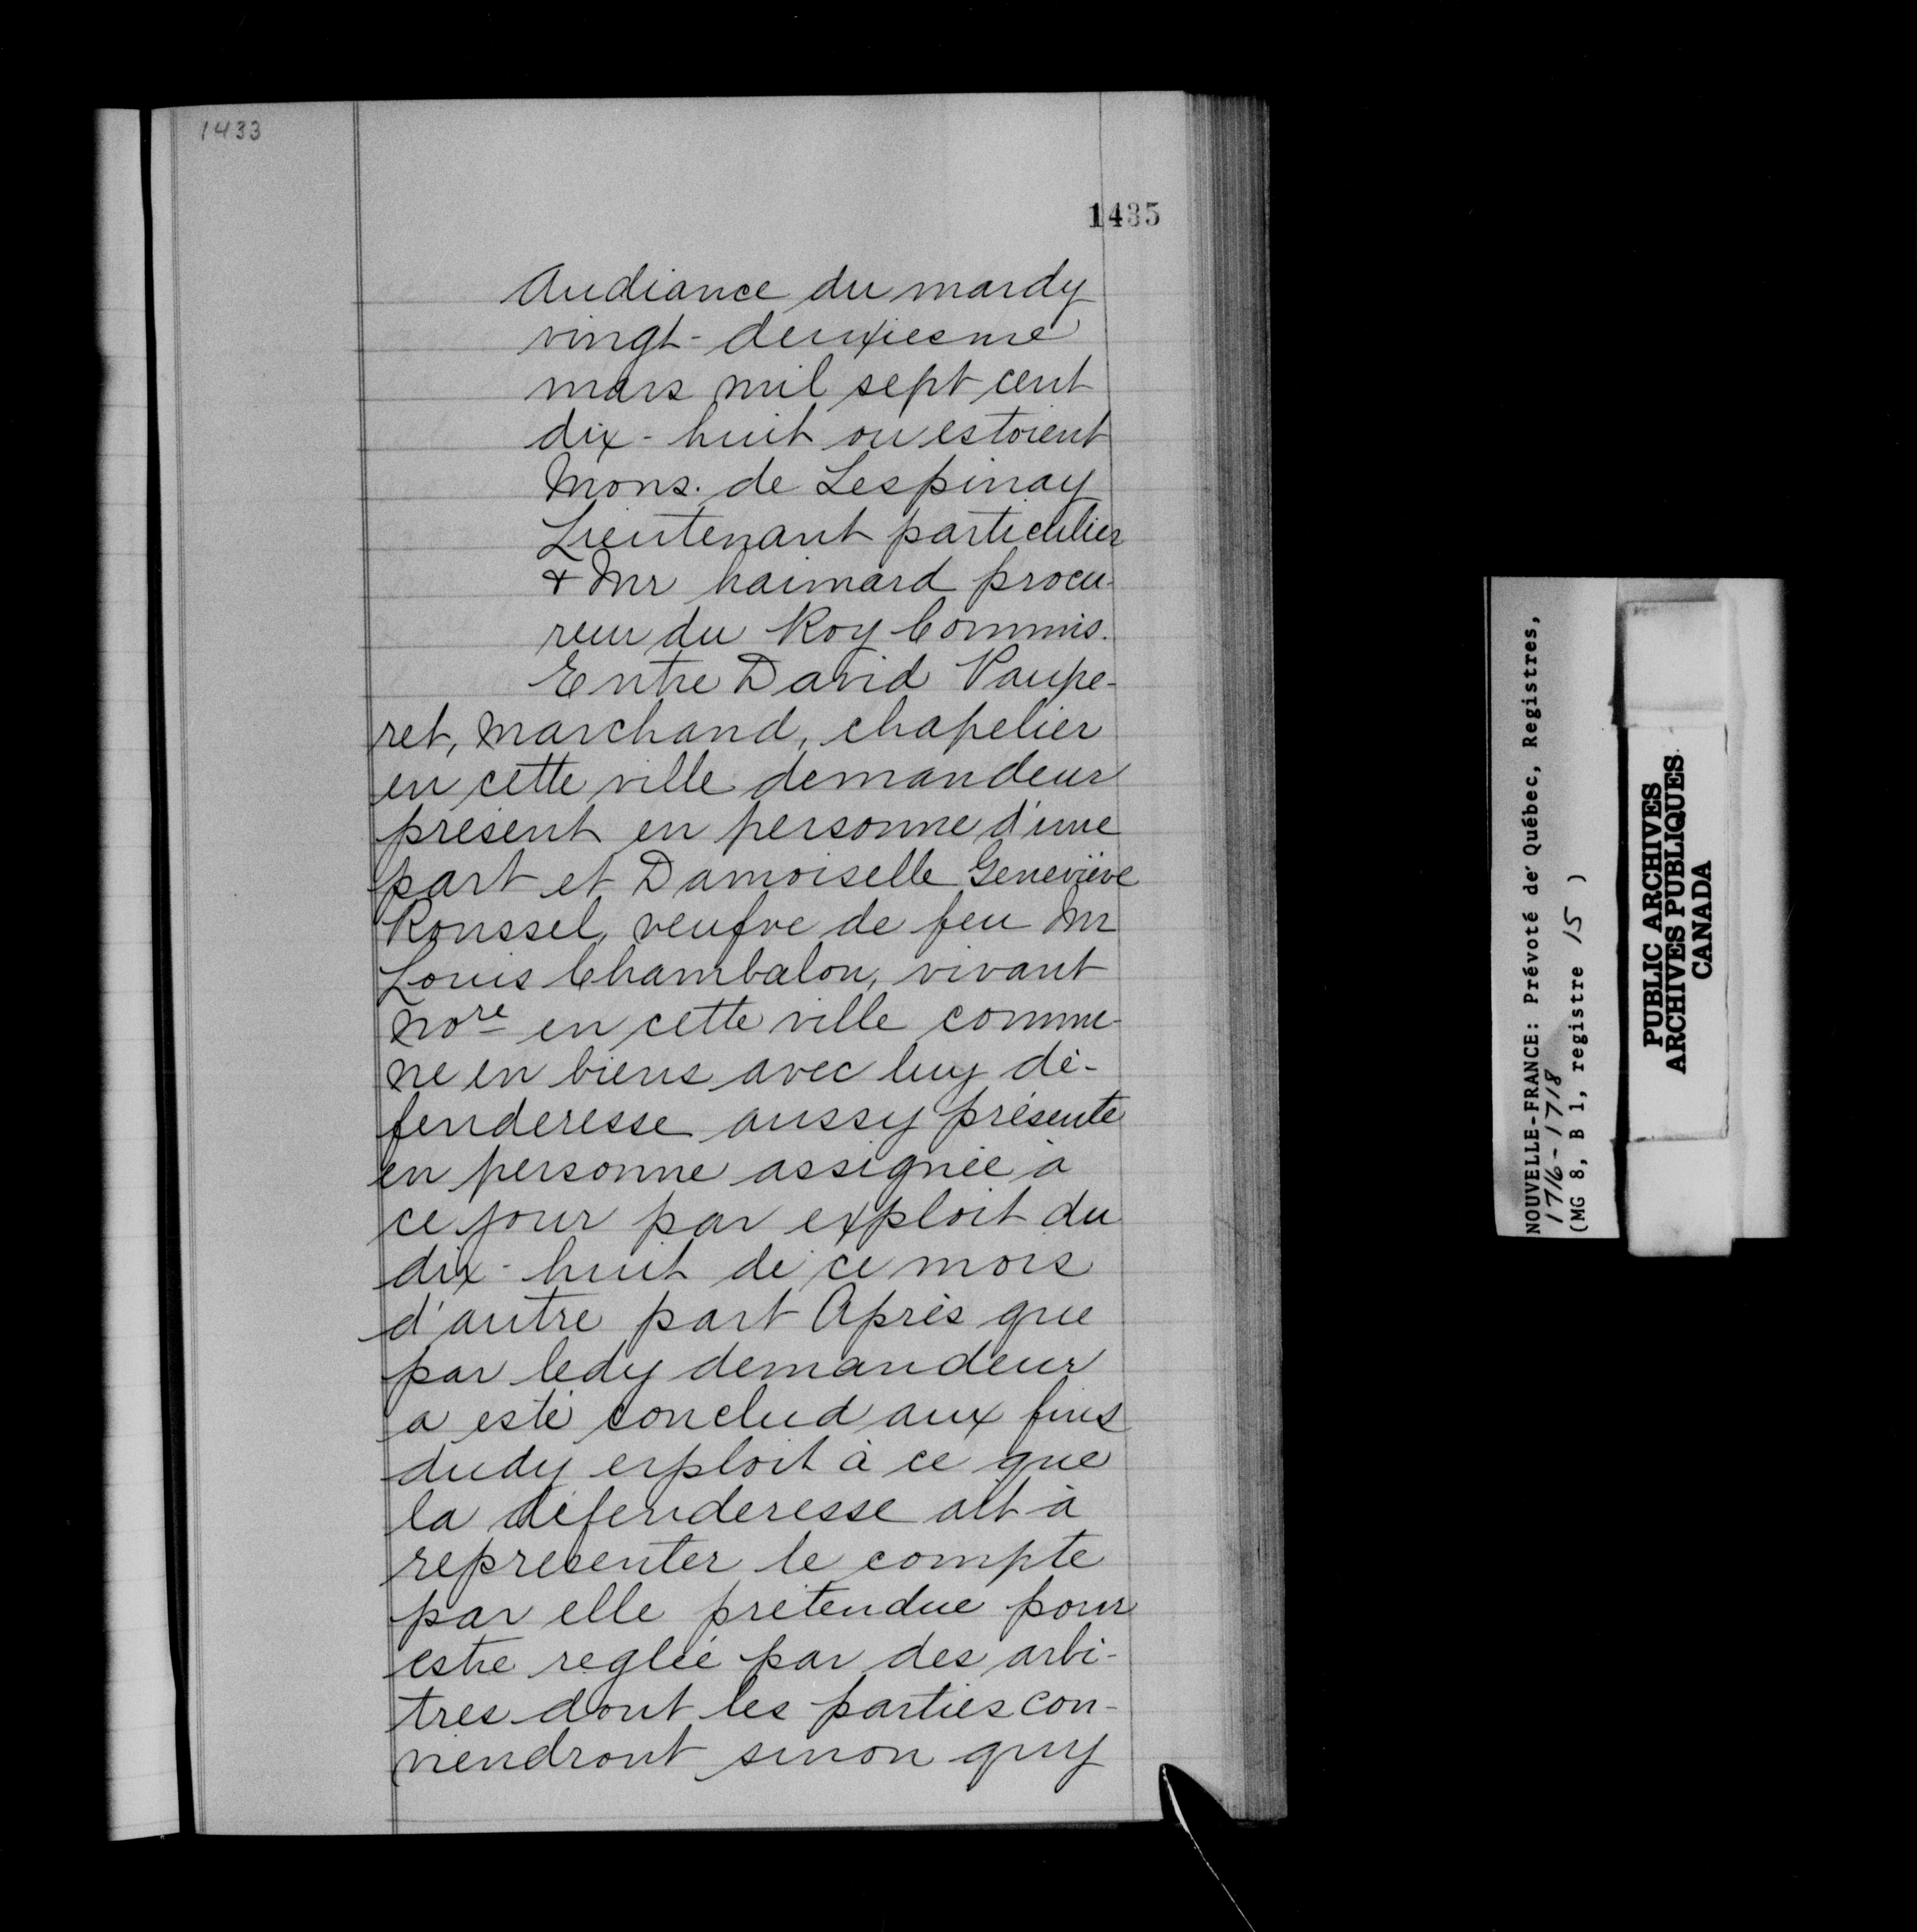 1433
1435
Audiance du mardy
vingt-deuxiesme
mars mil sept cent
dix-huit ou estoient
Mons. de Lespinay
Lieutenant particulier
& Mr haimard procu-
reur du Roy Commis.
Entre David Paupe-
ret, marchand, chapelier
en cette ville demandeur
présent en personne d'une
part et Damoiselle Geneviève
Roussel, veufve de feu Mr
Louis Chambalon, vivant
Nore en cette ville commu-
ne en biens avec luy dé-
fenderesse aussy présente
en personne assignée à
ce jour par exploit du
dix-huit de ce mois
d'autre part Après que
par ledy demandeur
a esté conclud aux fins
dudy exploit à ce que
la défenderesse ait à
representer le compte
par elle prétendue pour
estre reglée par des arbi-
tres dont les parties con-
viendront sinon quy
NOUVELLE-FRANCE: Prévoté de Québec, Registres,
1716-1718
(MG 8, B 1, registre 15 )
PUBLIC ARCHIVES
ARCHIVES PUBLIQUES
CANADA